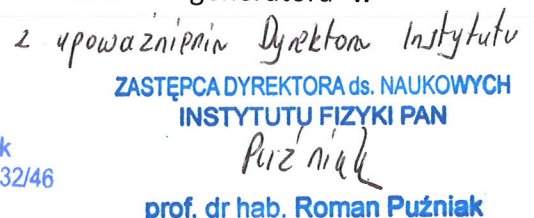 z upoważnienia Dyrektora Instytutu
ZASTĘPCA DYREKTORA ds. NAUKOWYCH
INSTYTUTU FIZYKI PAN
Puźniak
k
32/46
prof. dr hab. Roman Puźniak